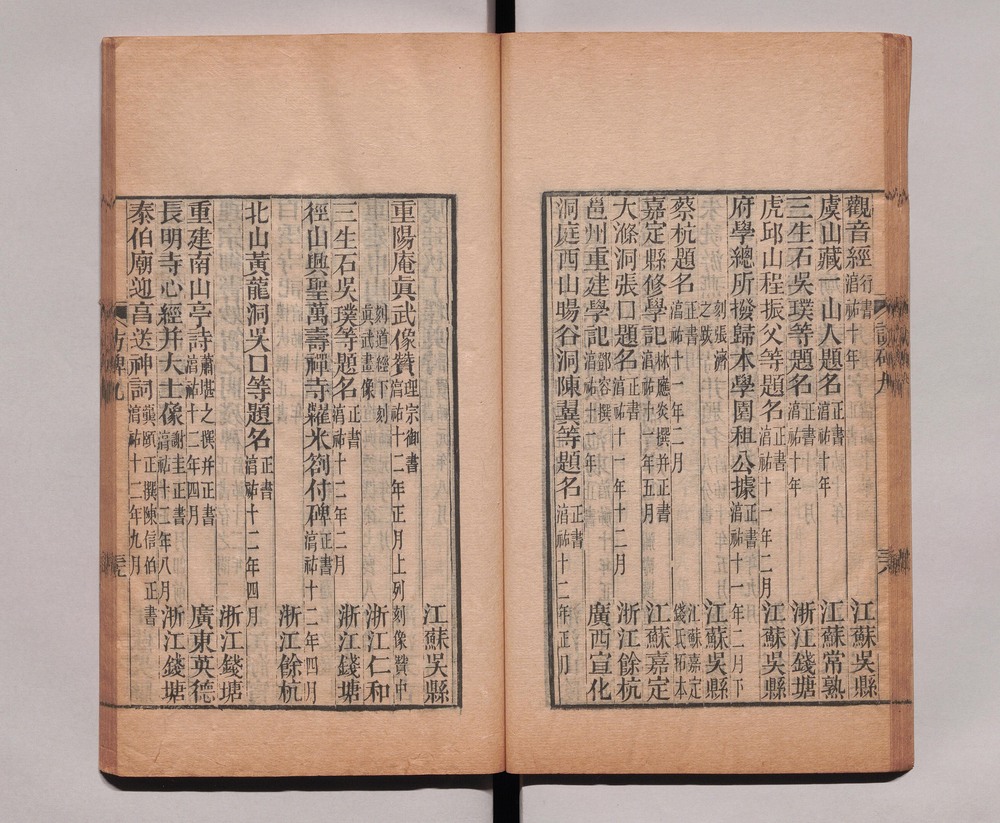 觀音經 行書 淳祐十年 江蘇吳縣
虞山藏一山人題名 正書 淳祐十年 江蘇常熟
三生石吳璞等題名 正書 淳祐十年 浙江錢塘
虎邱山程振父等題名 正書 淳祐十一年二月 江蘇吳縣
府學總所撥歸本學園租公據 正書 淳祐十一年二月下
刻張濟之跋 江蘇吳縣
蔡杭題名 正書 淳祐十一年二月 江蘇嘉定錢氏拓本
嘉定縣修學記 林應炎撰并正書 淳祐十一年五月 江蘇嘉定
大滌洞張口題名 正書 淳祐十一年十二月 浙江餘杭
邕州重建學記 鄧容撰 淳祐十年 廣西宣化
洞庭西山暘谷洞陳冀等題名 正書 淳祐十二年正月
江蘇吳縣
重陽庵真武像贊 理宗御書 淳祐十二年正月上列刻像贊中
刻道經下刻真武畫像 浙江仁和
三生石吳璞等題名 正書 淳祐十二年二月 浙江錢塘
徑山興聖萬壽禪寺羅米劄付碑 正書 淳祐十二年四月
浙江餘杭
北山黃龍洞吳口等題名 正書 淳祐十二年四月 浙江錢塘
重建南山亭詩 蕭湛之撰并正書 淳祐十二年四月 廣東英德
長明寺心經并大士像 謝圭正書 淳祐十三年八月 浙江錢塘
泰伯廟迎昌送神詞 龔頤正撰陳信伯正書 淳祐十二年九月